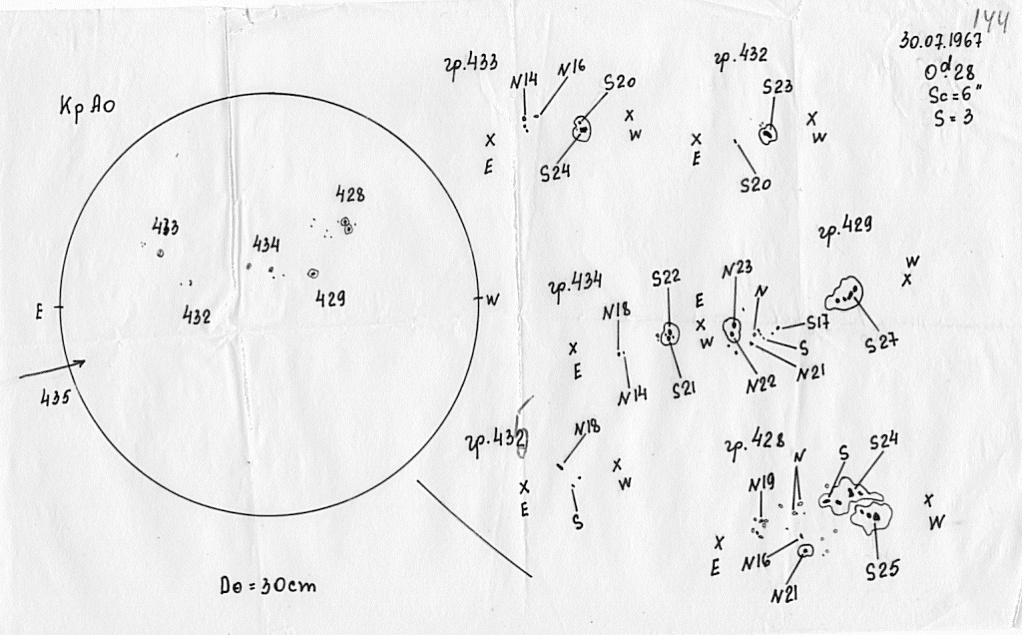 144
30.07.1967
0ᵈ.28
Sc = 6"
S = 3
Кр АО
433
428
434
429
432
E
W
435
D⊙ = 30cm
гр.433
N14
N16
S20
S24
X
E
X
W
гр.432
S23
S20
X
E
X
W
гр.429
N23
N
S17
S
N21
N22
S27
E
X
W
X
гр.434
N18
N14
S22
S21
X
E
X
W
гр.432
N18
S
X
E
X
W
гр.428
N19
N
S
S24
N16
N21
S25
X
E
X
W